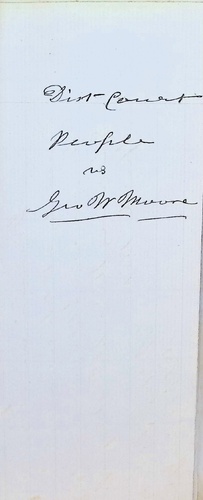 Dist Court
People
vs
Geo W Moore